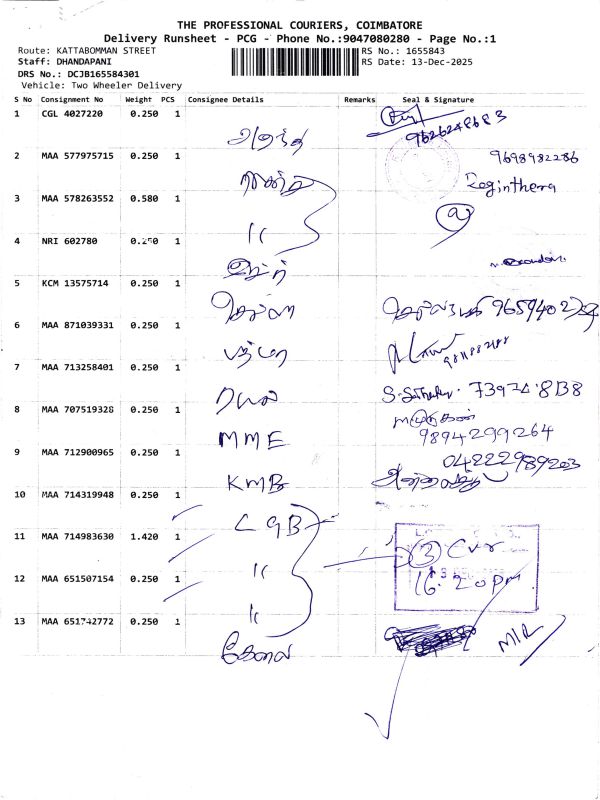 THE PROFESSIONAL COURIERS, COIMBATORE
Delivery Runsheet - PCG - Phone No.:9047080280 - Page No.:1
Route: KATTABOMMAN STREET RS No.: 1655843
Staff: DHANDAPANI RS Date: 13-Dec-2025
DRS No.: DCJB165584301
Vehicle: Two Wheeler Delivery
S No Consignment No Weight PCS Consignee Details Remarks Seal & Signature
1 CGL 4027220 0.250 1
9626248683
2 MAA 577975715 0.250 1 9698982286
Roginthera
3 MAA 578263552 0.580 1
4 NRI 602780 0.250 1 "
5 KCM 13575714 0.250 1
6 MAA 871039331 0.250 1
7 MAA 713258401 0.250 1 பத்மா
8 MAA 707519328 0.250 1
MME 9894299264
9 MAA 712900965 0.250 1 04222989203
KMB
10 MAA 714319948 0.250 1
CGB
11 MAA 714983630 1.420 1 3 Cvr
"
12 MAA 651507154 0.250 1 16:20pm
"
13 MAA 651742772 0.250 1
MIR